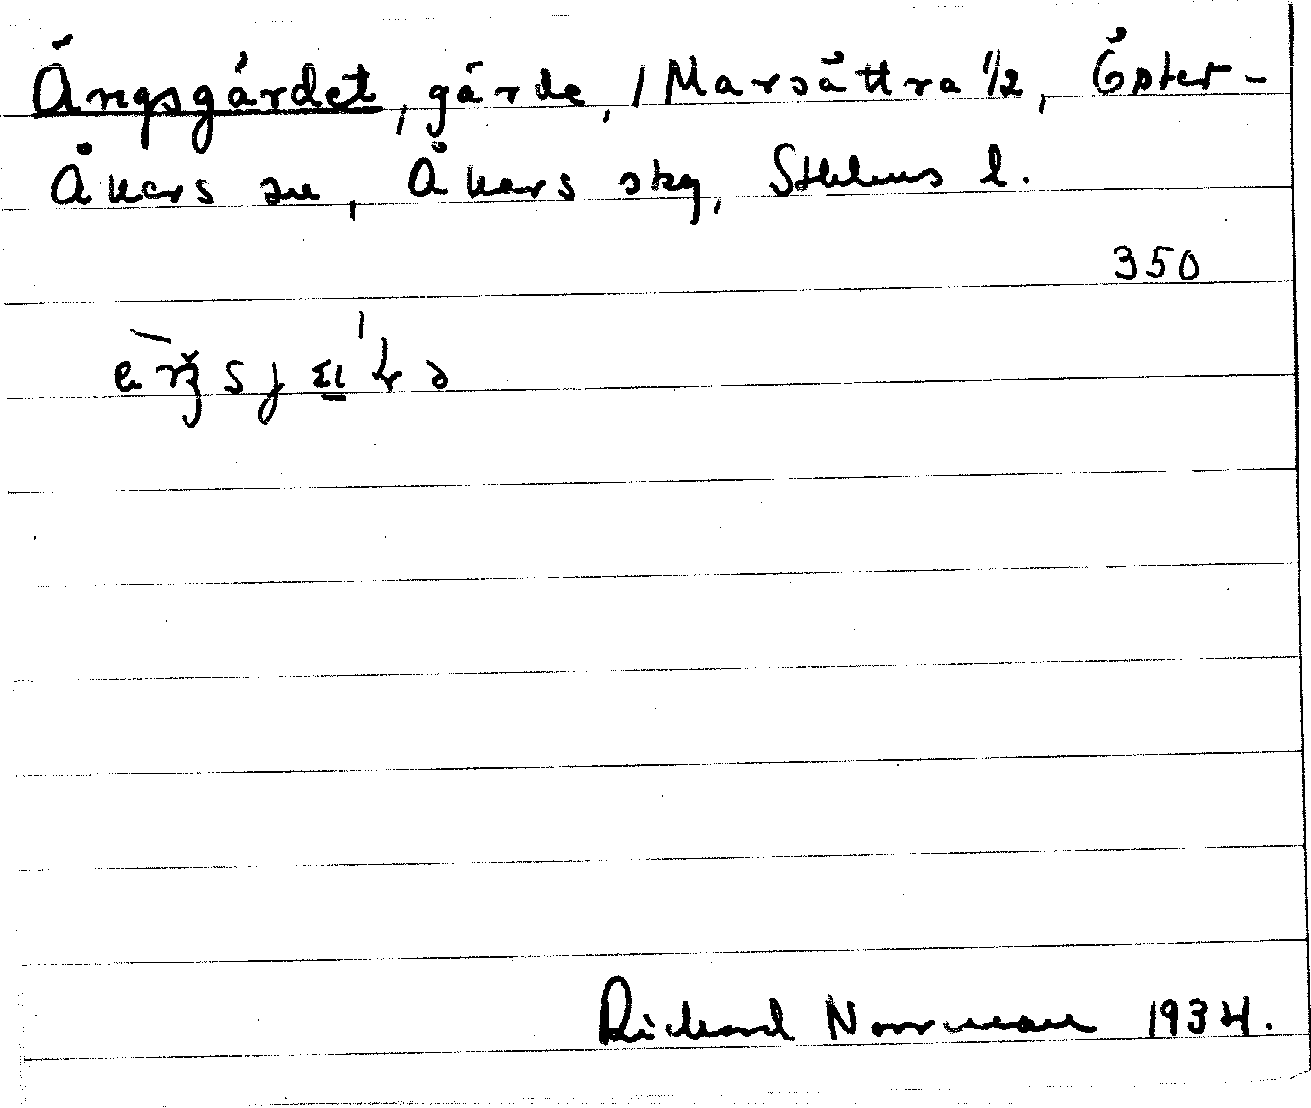 Ängsgärdet, gärde, / Marsättra 1/2, Öster-
Åkers sn, Åkers skg, Sthlms l.
350
Richard Norrman 1934.